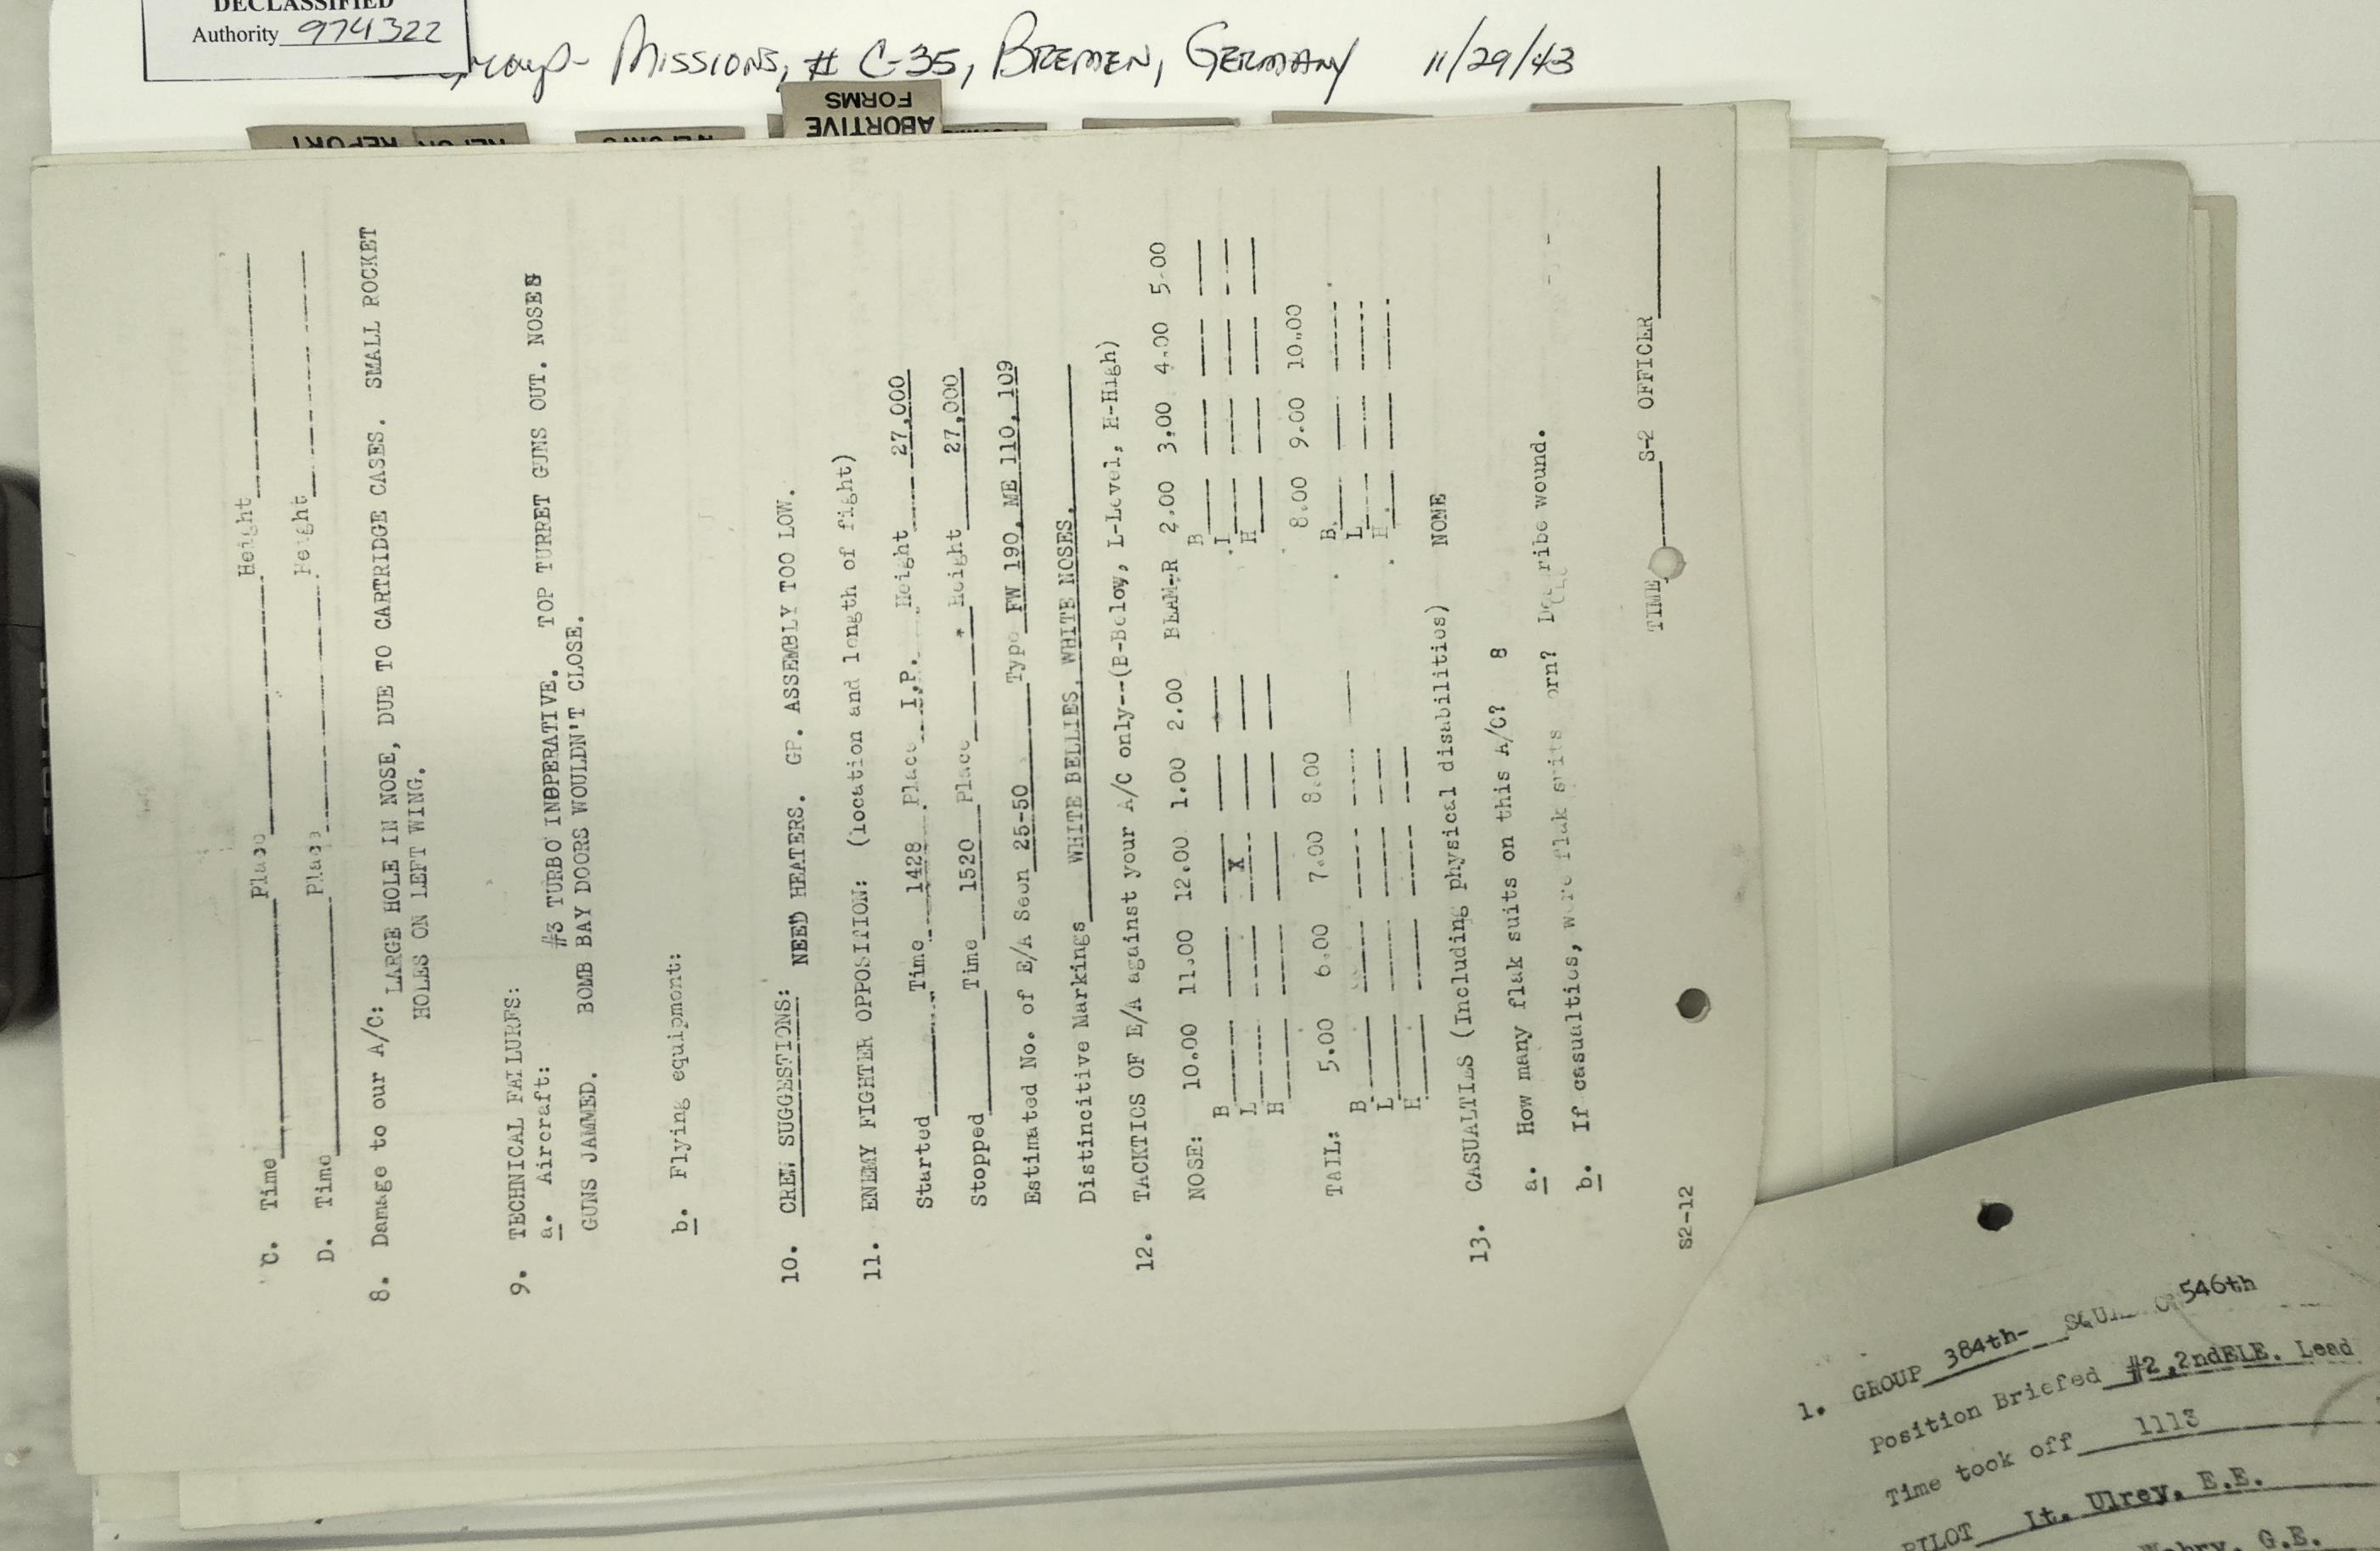 DECLASSIFIED
Authority 974322
Group- Missions, # C-35, Bremen, Germany 11/29/43
ABORTIVE
FORMS
REPORT
C. Time Place Height
D. Time Place Height
8. Damage to our A/C:
LARGE HOLE IN NOSE, DUE TO CARTRIDGE CASES. SMALL ROCKET
HOLES ON LEFT WING.
9. TECHNICAL FAILURES:
a. Aircraft: #3 TURBO INOPERATIVE. TOP TURRET GUNS OUT. NOSE
GUNS JAMMED. BOMB BAY DOORS WOULDN'T CLOSE.
b. Flying equipment:
10. CREW SUGGESTIONS: NEED HEATERS. GP. ASSEMBLY TOO LOW.
11. ENEMY FIGHTER OPPOSITION: (location and length of fight)
Started Time 1428 Place I.P. Height 27,000
Stopped Time 1520 Place * Height 27,000
Estimated No. of E/A Seen 25-50 Type FW 190, ME 110, 109
Distincitive Markings WHITE BELLIES, WHITE NOSES.
12. TACKTICS OF E/A against your A/C only--(B-Below, L-Level, H-High)
NOSE: 10.00 11.00 12.00 1.00 2.00 BEAM-R 2.00 3.00 4.00 5.00
B B
L X L
H H
TAIL: 5.00 6.00 7.00 8.00 8.00 9.00 10.00
B B.
L L
H H
13. CASUALTIES (Including physical disabilities) NONE
a. How many flak suits on this A/C? 8
b. If casualties, were flak suits worn? Describe wound.
TIME S-2 OFFICER
S2-12
1. GROUP 384th- 546th
Position Briefed #2,2ndELE. Lead
Time took off 1113
PILOT Lt. Ulrey, E.E.
G.E.